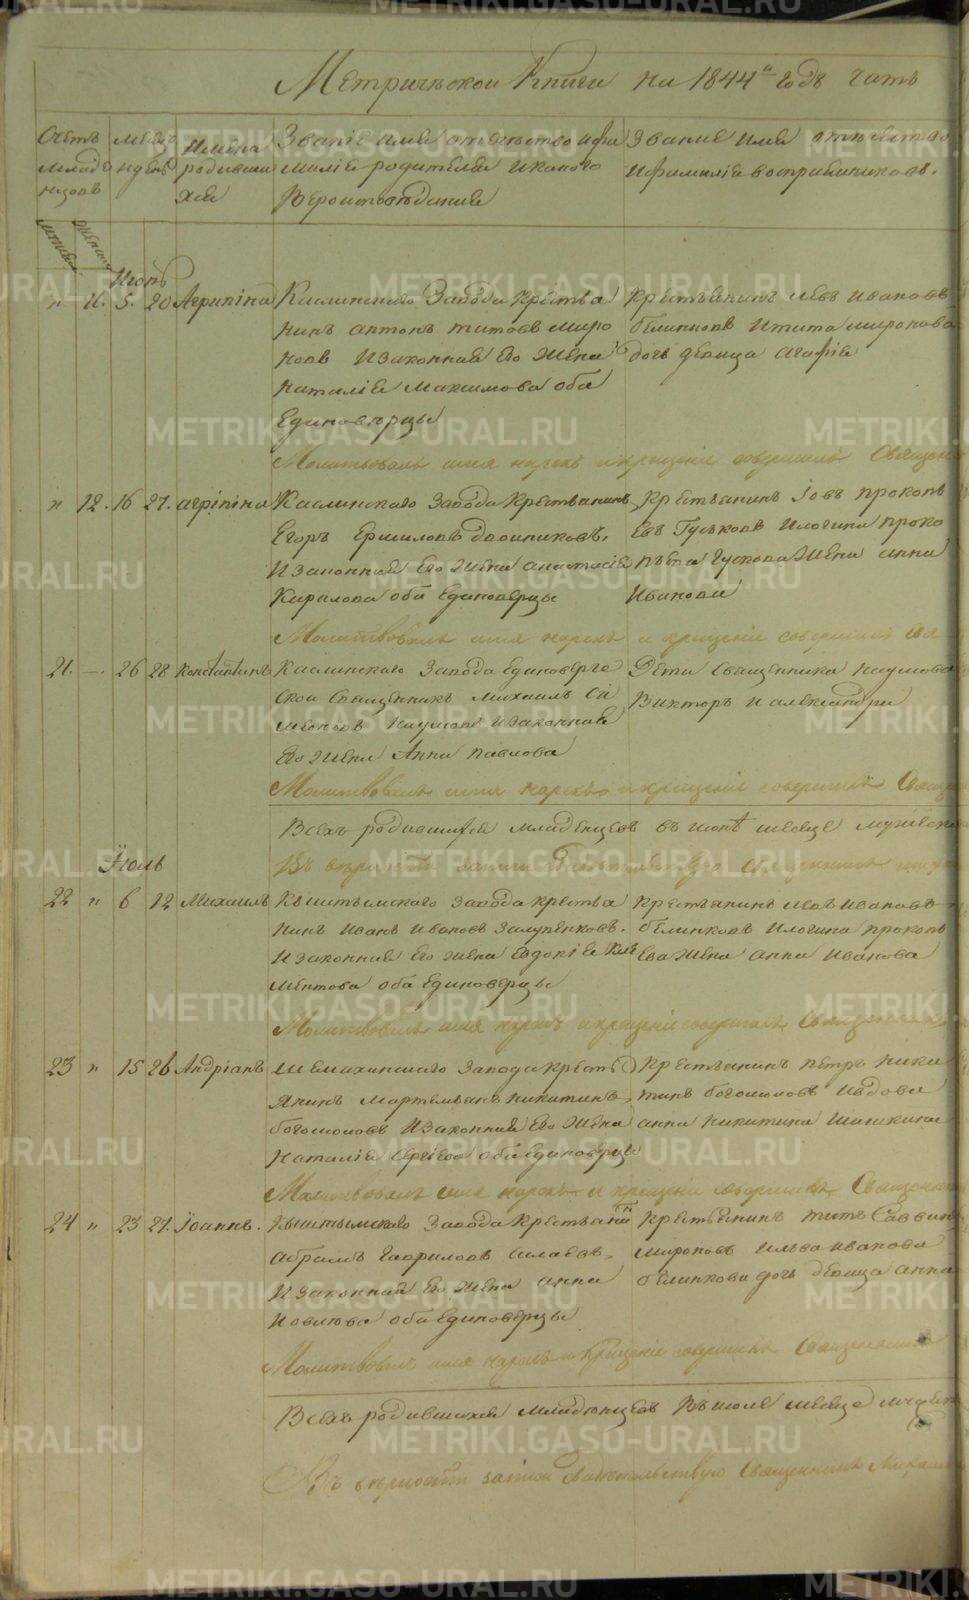 Метрической Книги на 1844й годъ часть
Счетъ младенцовъ
месяцъ и день
имена родившихся
Званiе имя отечество и фамилiе родителей и какого вероисповеданiя
Звание имя отечество и фамилiе воспрiемниковъ.
Июнь
" 11. 5. 20 Агрипина
Каслинского Завода Крестья
нинъ антонъ титовъ миро
новъ и законная его жена
Наталiя Максимова оба
Единоверцы
Крестьянинъ левъ ивановъ
блиновъ и тита миронова
дочь девица агафiя
Молитвовалъ имя нарекъ и крещенiе совершилъ Священ
" 12. 16 27. агрипина
Каслинского Завода Крестьянинъ
Егоръ Ермиловъ двойниковъ.
и законная его жена анастасiя
Кирилова оба Единоверцы
Крестьянинъ Iовъ прокопь
евъ Гуськовъ и логина проко
пьева гускова жена анна
Иванова
Молитвовалъ имя нарекъ и крещенiе совершилъ Свя
21. — 26 28 Константинъ
Каслинского Завода единоверче
ской Священникъ михаилъ Си
меоновъ Наумовъ и законная
его жена Анна павлова
Дети Священника наумова
Викторъ и александра
Молитвовалъ имя нарекъ и крещенiе совершилъ Священ
Всехъ родившихся младенцевъ въ июне месяце мужеска
Въ верности записи Свидетельствую Священникъ
Июль
22 " 6 12 Михаилъ
Кыштымского завода крестья
нинъ Иванъ Ивановъ
и законная его жена Евдокiя Кле
ментова оба единоверцы
Крестьянинъ левъ ивановъ
блинковъ и логина прокопь
ева жена анна иванова
Молитвовалъ имя нарекъ и крещенiе совершилъ Священникъ
23 " 15 26 Андрiанъ
Шемахинского Завода кресть
янинъ мартемьянъ никитинъ
богомоловъ и законная его жена
Наталiя Сергiева оба единоверцы
Крестьянинъ петръ ники
тинъ богомоловъ и вдова
анна никитина
Молитвовалъ имя нарекъ и крещенiе совершилъ Священникъ
24 " 23 27. Iоаннъ.
Кыштымского Завода Крестьянинъ
абрамъ гавриловъ
и законная его жена анна
иовлюва оба единоверцы
Крестьянинъ титъ Саввинъ
мироновъ и льва иванова
блинкова дочь девица анна
Молитвовалъ имя нарекъ и Крещенiе совершилъ Священникъ
Всехъ родившихся младенцевъ въ июле месяце мужеск
Въ верности записи Свидетельствую Священникъ Михаилъ
METRIKI.GASO-URAL.RU